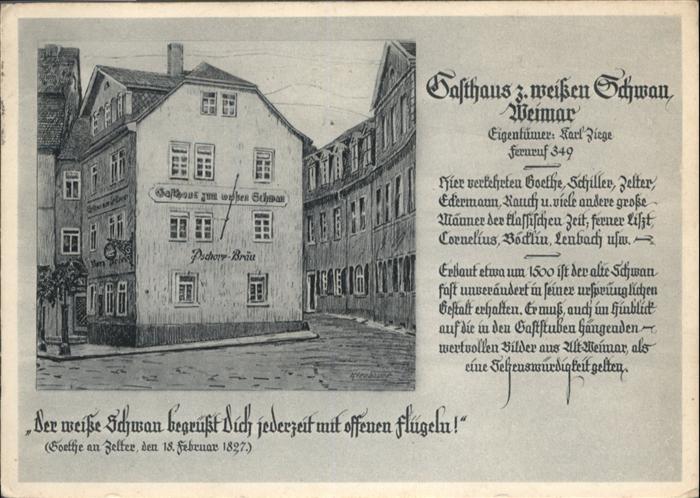 Gasthaus z. weißen Schwan
Weimar
Eigentümer: Karl Ziege
Fernruf 349
Hier verkehrten Goethe, Schiller, Zelter,
Eckermann, Rauch u. viele andere große
Männer der klassischen Zeit; ferner Liszt,
Cornelius, Böcklin, Lenbach usw.
Erbaut etwa um 1500 ist der alte Schwan
fast unverändert in seiner ursprünglichen
Gestalt erhalten. Er muß, auch im Hinblick
auf die in den Gaststuben hängenden
wertvollen Bilder aus Alt-Weimar, als
eine Sehenswürdigkeit gelten.
Gasthaus zum weißen Schwan
Pschorr-Bräu
„Der weiße Schwan begrüßt Dich jederzeit mit offenen Flügeln!"
(Goethe an Zelter, den 18. Februar 1827.)